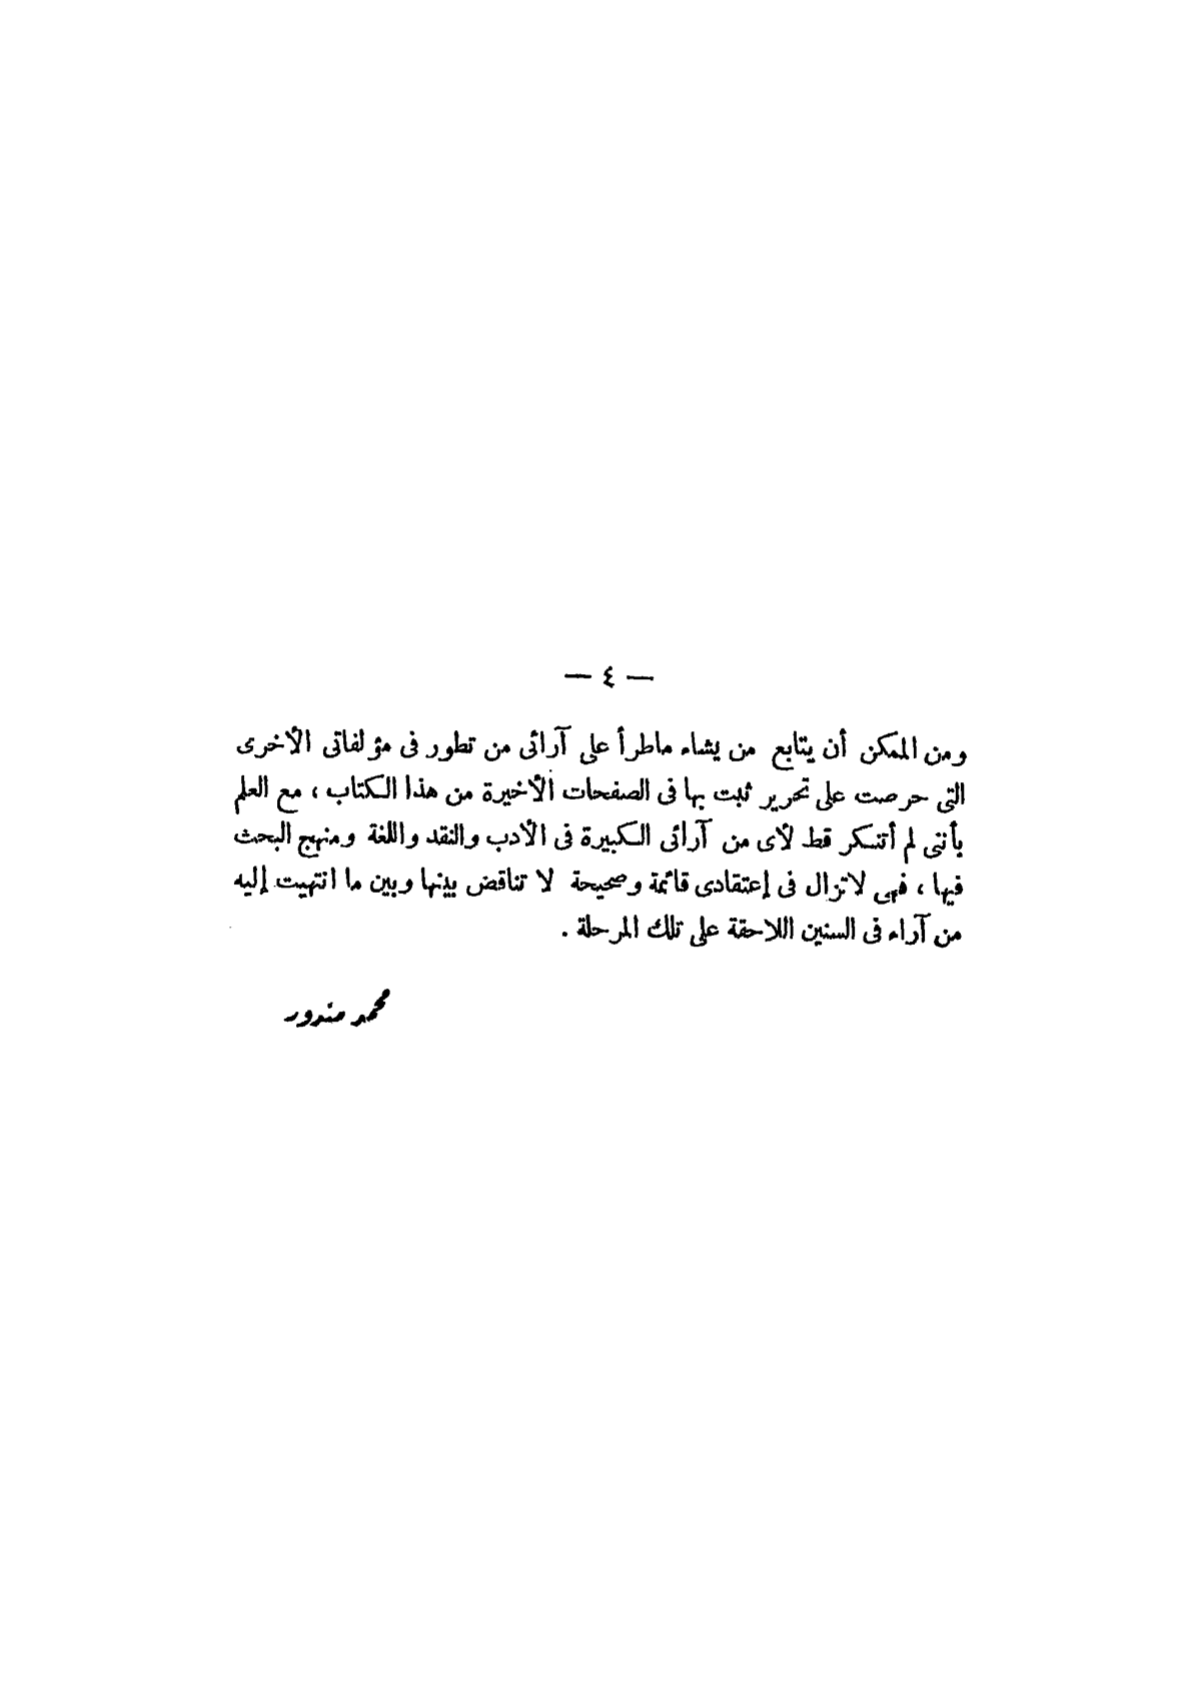 — ٤ —
ومن الممكن أن يتابع من يشاء ماطرأ على آرائى من تطور فى مؤلفاتى الأخرى
التى حرصت على تحرير ثبت بها فى الصفحات الأخيرة من هذا الكتاب ، مع العلم
بأننى لم أتنكر قط لأى من آرائى الكبيرة فى الأدب والنقد واللغة ومنهج البحث
فيها ، فهى لاتزال فى إعتقادى قائمة وصحيحة لا تناقض بينها وبين ما انتهيت إليه
من آراء فى السنين اللاحقة على تلك المرحلة .
محمد مندور